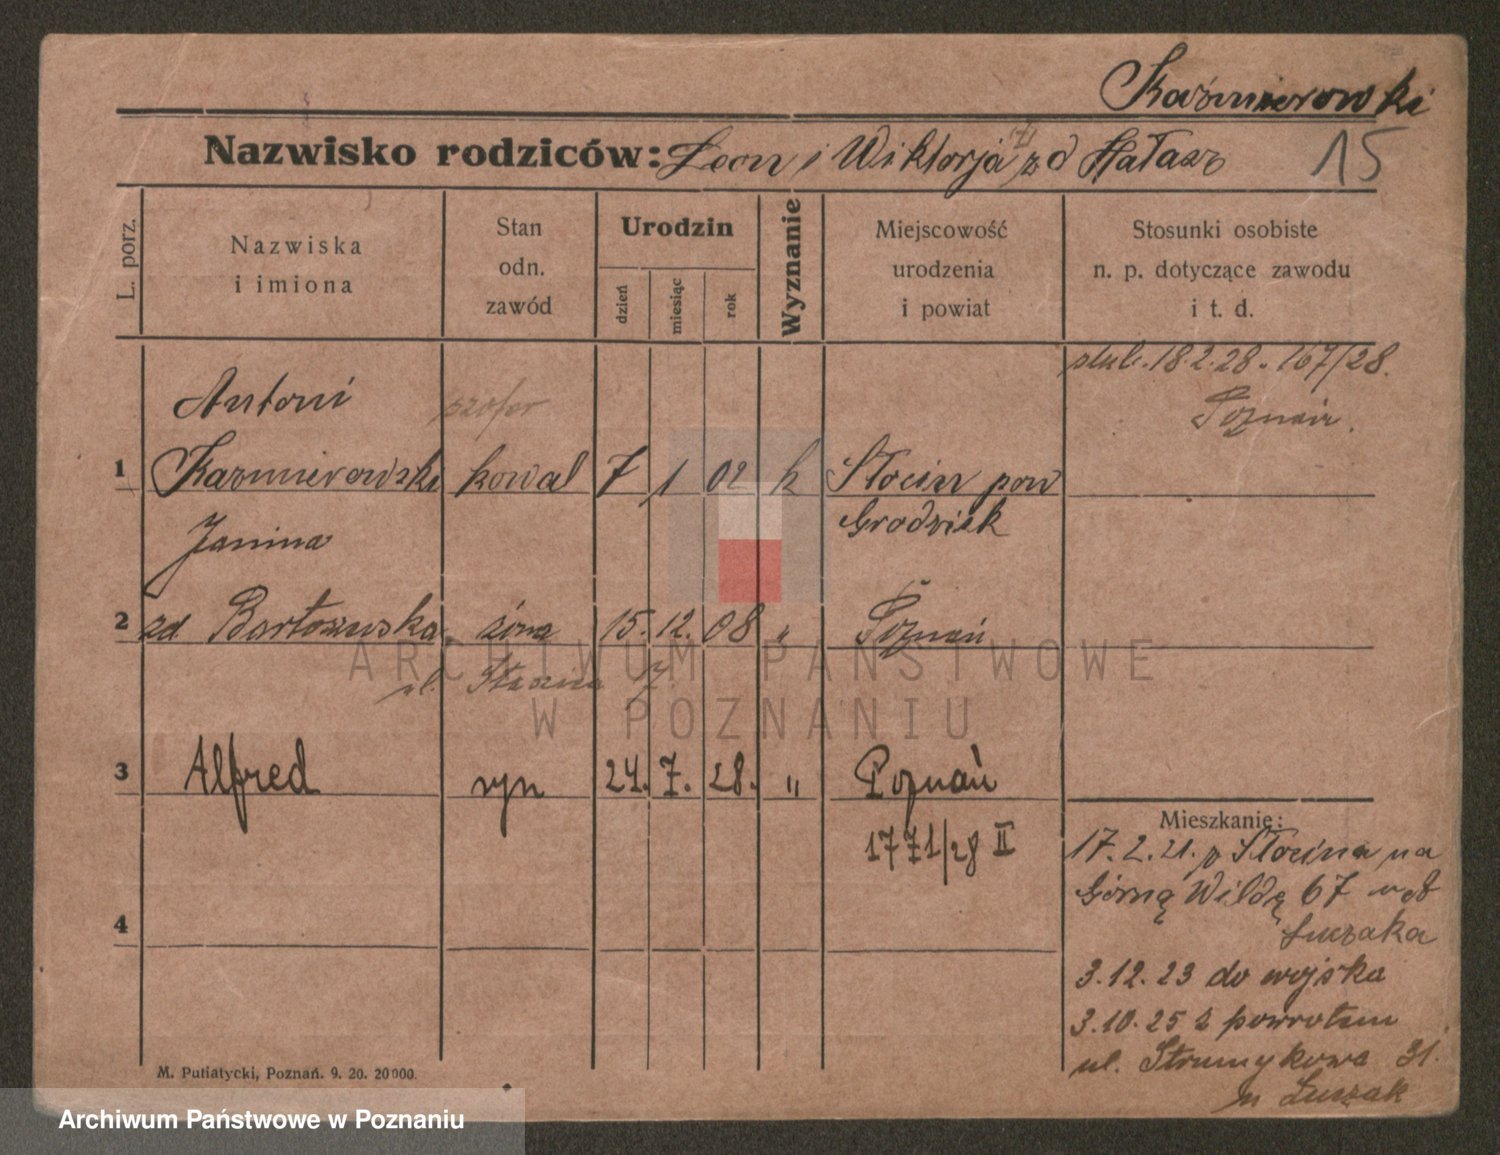 Kaźmierowski
Nazwisko rodziców: Leon i Wiktorja zd Hałasz
15
L. porz.
Nazwiska
i imiona
Stan
odn.
zawód
Urodzin
dzień
miesiąc
rok
Wyznanie
Miejscowość
urodzenia
i powiat
Stosunki osobiste
n. p. dotyczące zawodu
i t. d.
ślub. 18.2.28. 167/28.
Poznań.
Antoni szofer
1 Kazmierowski kowal 7 1 02 k Słocin pow
Grodzisk
Janina
2 zd. Bartoszewska żona 15. 12. 08 " Poznań
ul. 7
3 Alfred syn 24. 7. 28. " Poznań
1771/28 II
4
Mieszkanie:
17.2.21. z Słocina na
Górną Wildę 67
Luczaka
3.12.23 do wojska
3.10.25 z powrotem
ul. Strumykowa 31.
Luczak
M. Putiatycki, Poznań. 9. 20. 20000.
ARCHIWUM PAŃSTWOWE
W POZNANIU
Archiwum Państwowe w Poznaniu